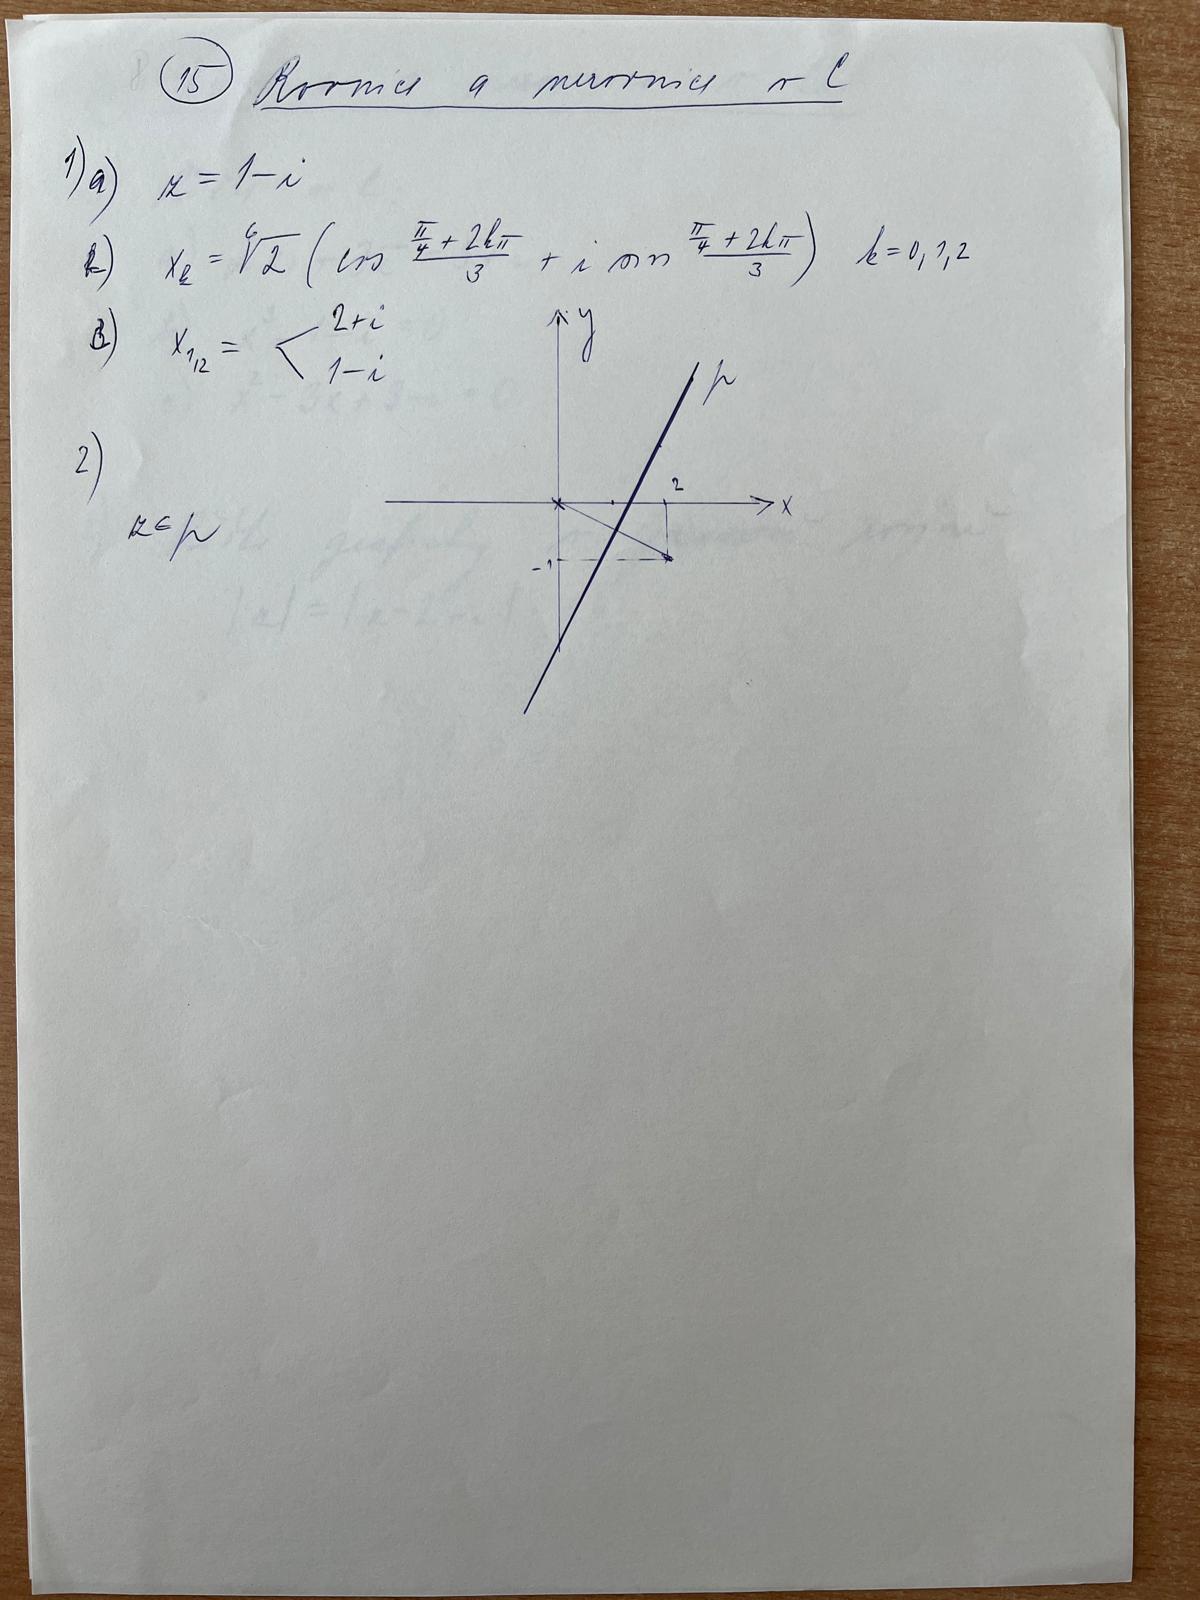 15 Rovnice a nerovnice v C
1) a) z = 1-i
b) x_k = ⁶√2 (cos (π/4 + 2kπ)/3 + i sin (π/4 + 2kπ)/3) k=0,1,2
c) x_1,2 = < 2+i
1-i
y
p
2)
2
x
z ∈ p
-1